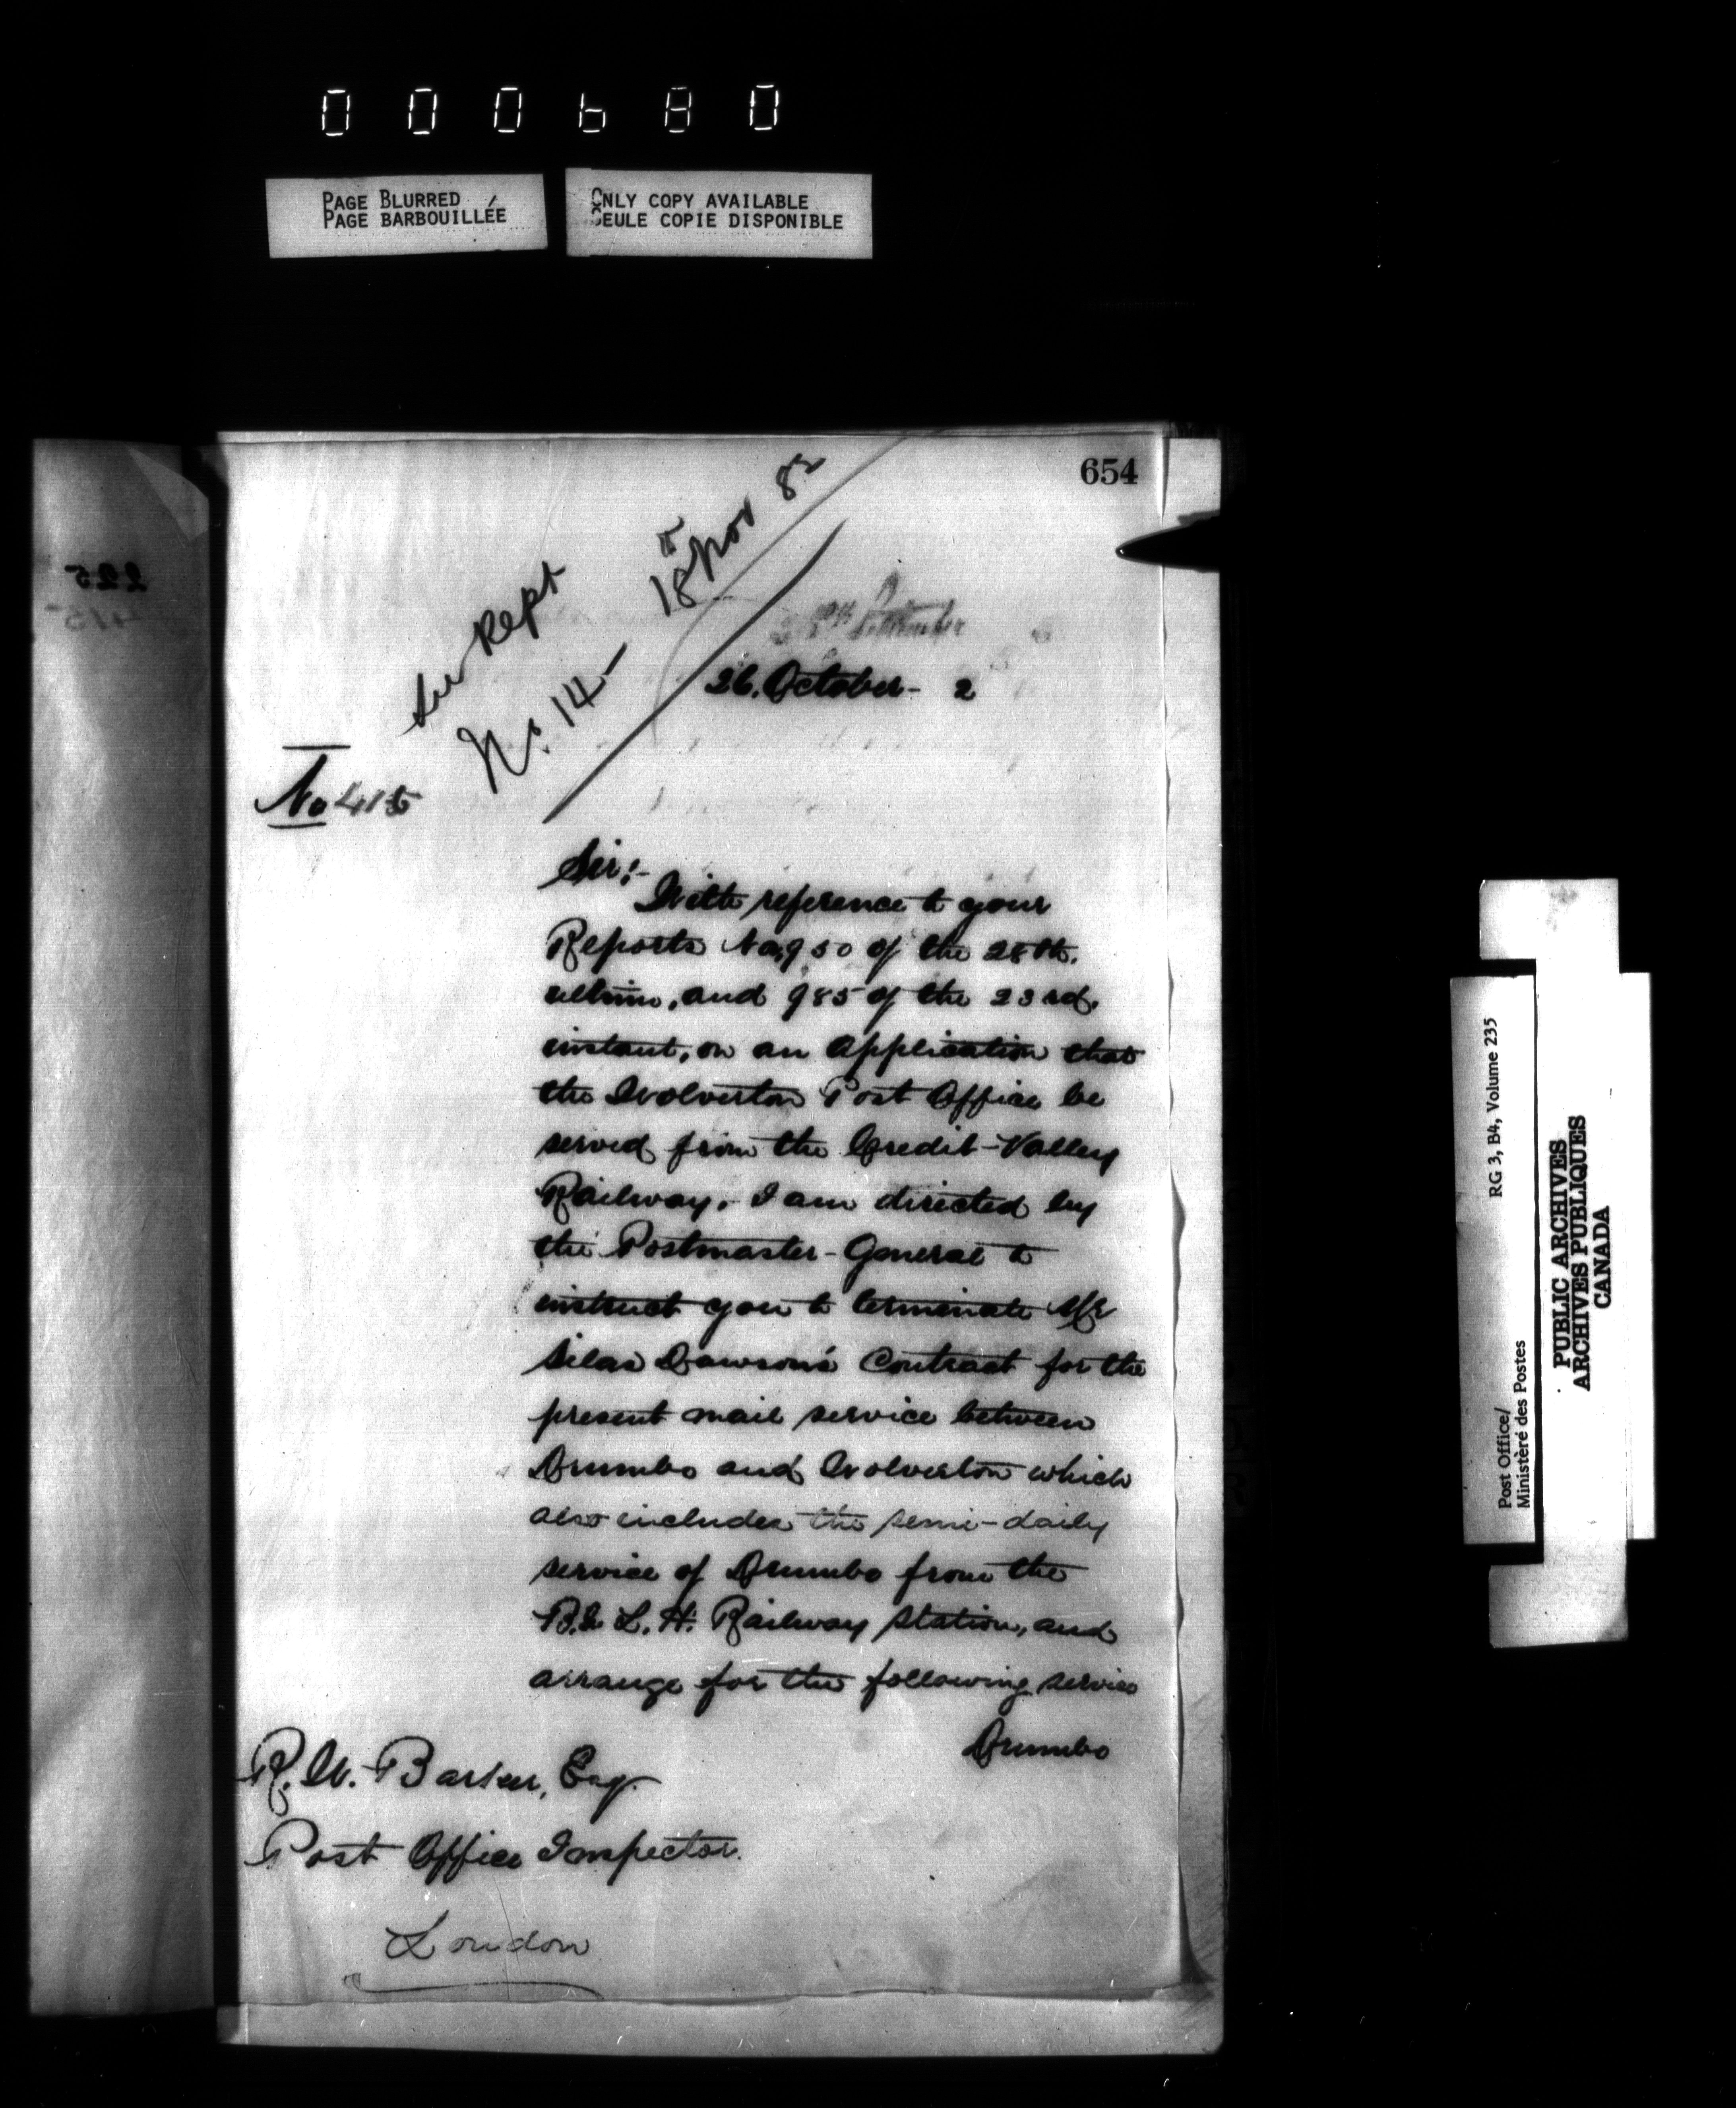 000680
PAGE BLURRED
PAGE BARBOUILLÉE
ONLY COPY AVAILABLE
SEULE COPIE DISPONIBLE
654
225
415
See Rept
No. 14 - 18 Nov 82
26. October - 2
No 415
Sir:-
With reference to your
Reports Nos, 950 of the 28th.
ultimo, and 985 of the 23rd.
instant, on an Application that
the Wolverton Post Office be
served from the Credit-Valley
Railway,- I am directed by
the Postmaster-General to
instruct you to terminate Mr
Silas Dawson's Contract for the
present mail service between
Drumbo and Wolverton which
also includes the semi-daily
service of Drumbo from the
B. & L. H. Railway Station, and
arrange for the following service
Drumbo
R. W. Barker, Esq.
Post Office Inspector.
London
Post Office/
Ministèré des Postes
RG 3, B4, Volume 235
PUBLIC ARCHIVES
ARCHIVES PUBLIQUES
CANADA